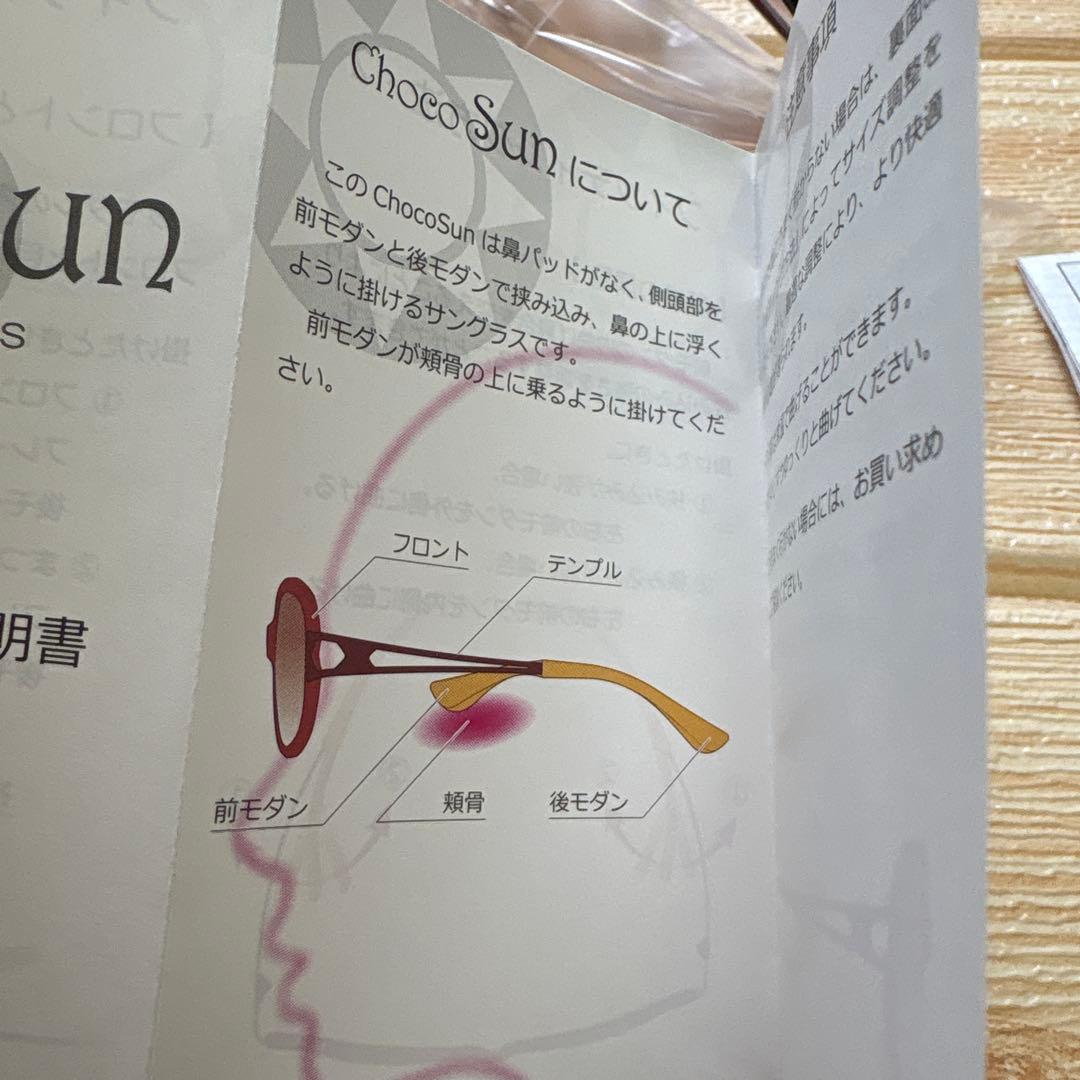 un
s
明書
Choco Sun について
この ChocoSun は鼻パッドがなく、側頭部を
前モダンと後モダンで挟み込み、鼻の上に浮く
ように掛けるサングラスです。
前モダンが頬骨の上に乗るように掛けてくだ
さい。
フロント
テンプル
前モダン
頬骨
後モダン
意事項
らない場合は、裏面
によってサイズ調整を
な調整により、より快適
れます。
曲げることができます。
ゆっくりと曲げてください。
ない場合には、お買い求め
ください。